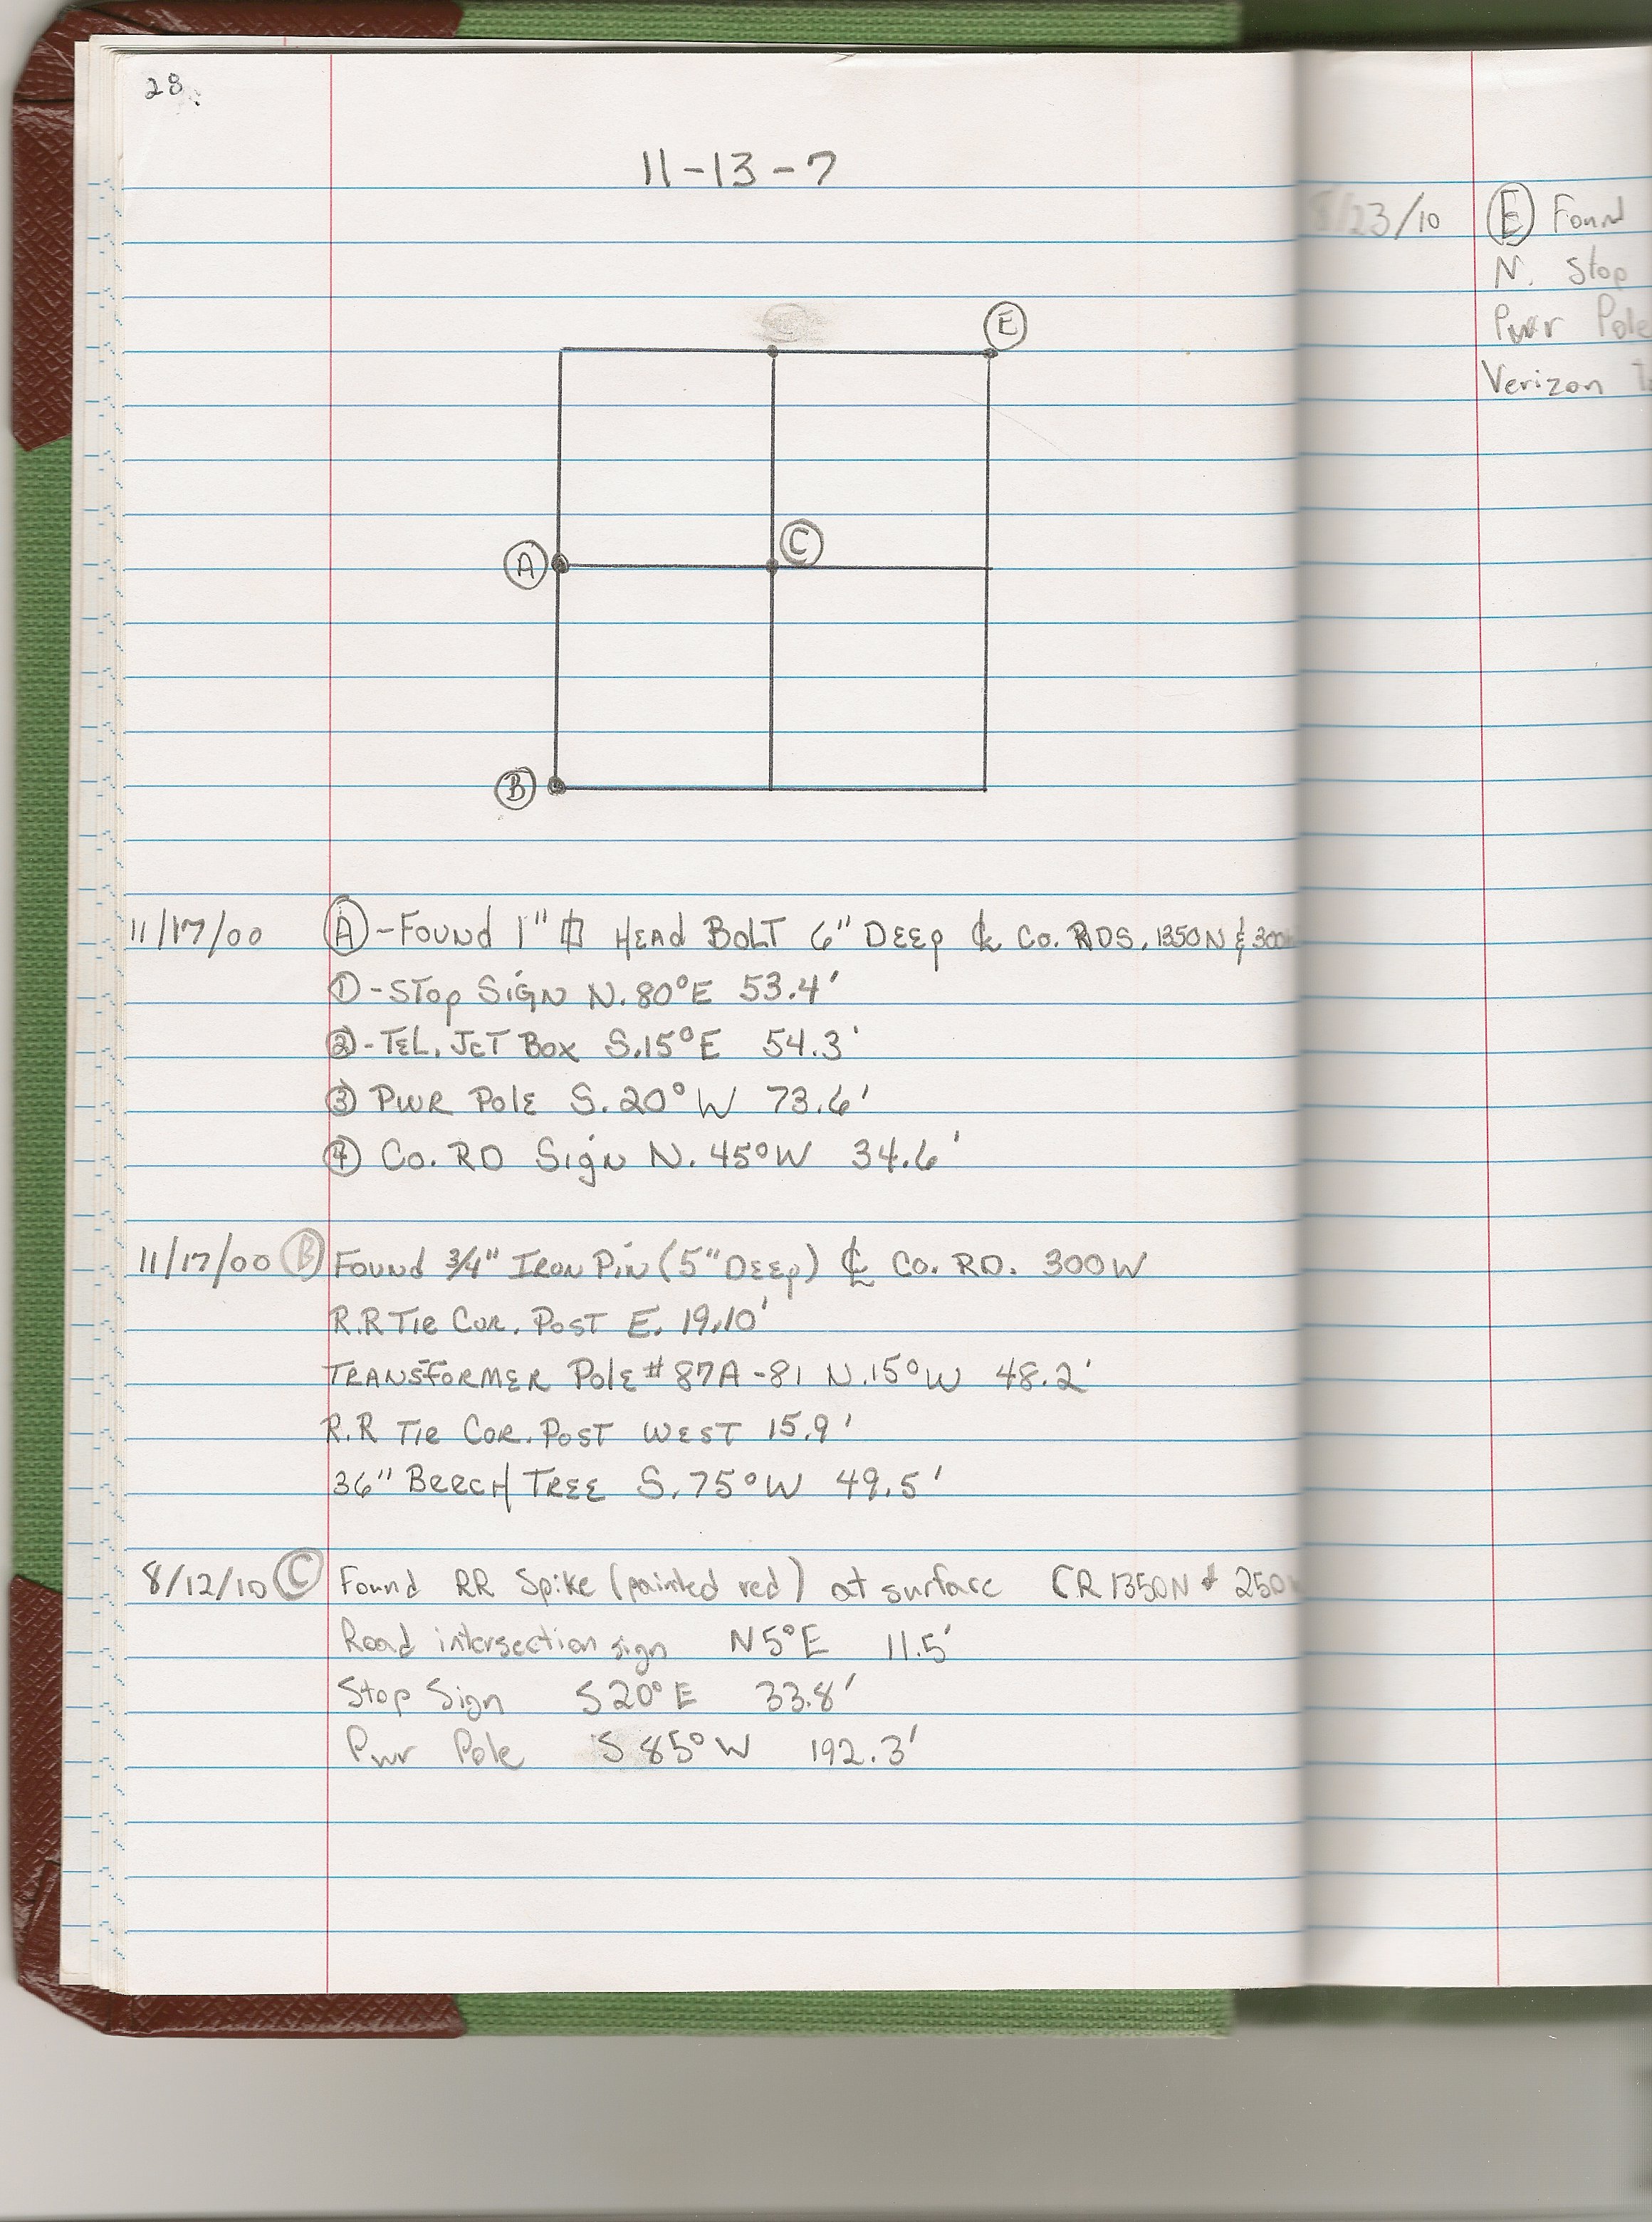 28
11-13-7
E
C
A
B
11/17/00 A -Found 1" ⏍ Head Bolt 6" Deep ℄ Co. RDS. 1350N & 300
① -Stop Sign N.80°E 53.4'
② -Tel. Jct Box S.15°E 54.3'
③ Pwr Pole S.20°W 73.6'
④ Co. RD Sign N.45°W 34.6'
11/17/00 B Found 3/4" Iron Pin (5" Deep) ℄ Co. RD. 300W
R.R Tie Cor. Post E. 19.10'
Transformer Pole # 87A-81 N.15°W 48.2'
R.R Tie Cor. Post West 15.9'
36" Beech Tree S.75°W 49.5'
8/12/10 C Found RR Spike (painted red) at surface CR 1350N & 250
Road intersection sign N5°E 11.5'
Stop Sign S20°E 33.8'
Pwr Pole S85°W 192.3'
8/23/10 E Foun
N. Stop
Pwr Pole
Verizon